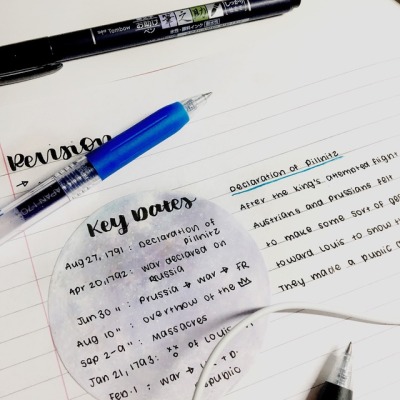 Tombow
Revision
JAPAN
Key Dates
Aug 27, 1791 : Declaration of
Pillnitz
Apr 20, 1792 : war declared on
Russia
Jun 30 " : Prussia → war → FR
Aug 10 " : overthrow of the
Sep 2-6 " : Massacres
Jan 21, 1793 : of Louis
Feb 1 : war →
Declaration of Pillnitz
After the king's attempted flight
Austrians and Prussians felt
to make some sort of
toward Louis to show
They made a public